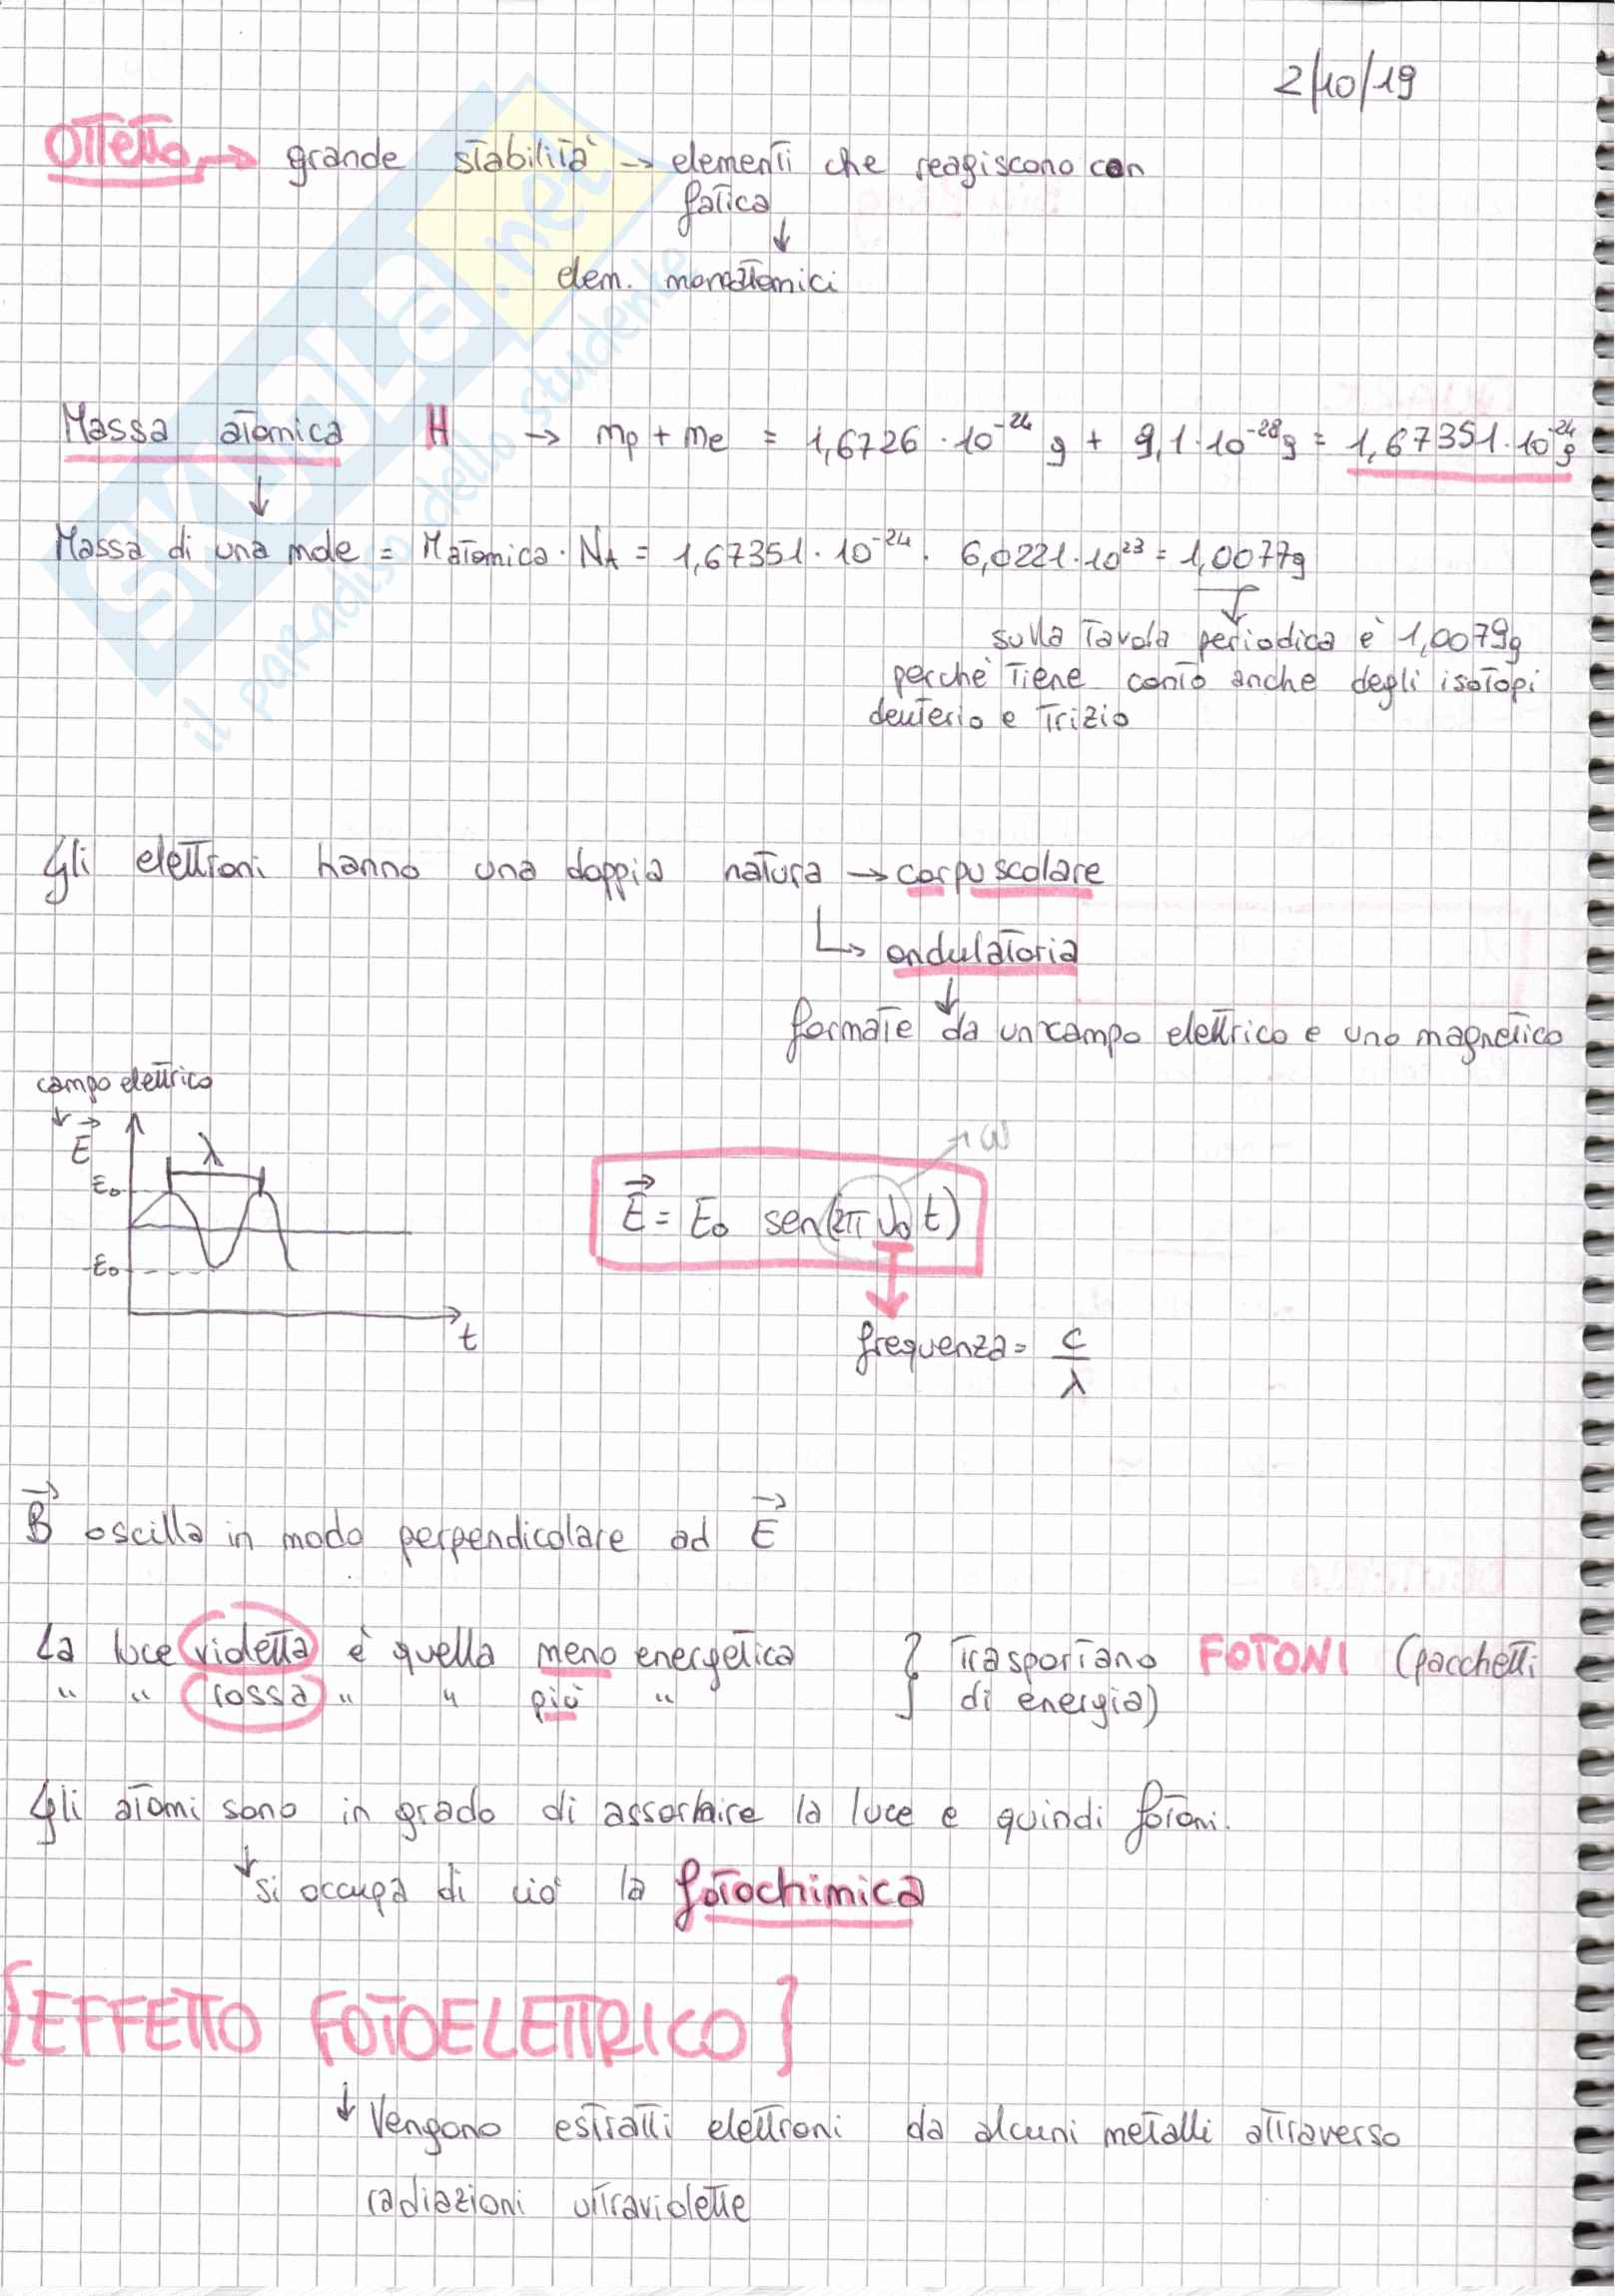 2/10/19
Ottetto → grande stabilità → elementi che reagiscono con
fatica
↓
elem. monoatomici
Massa atomica H → mp + me = 1,6726 · 10⁻²⁴ g + 9,1 · 10⁻²⁸ g = 1,67351 · 10⁻²⁴ g
↓
Massa di una mole = Matomica · NA = 1,67351 · 10⁻²⁴ · 6,0221 · 10²³ = 1,0077g
↓
sulla tavola periodica è 1,0079g
perchè tiene conto anche degli isotopi
deuterio e trizio
Gli elettroni hanno una doppia natura → corpuscolare
↳ ondulatoria
↓
formate da un campo elettrico e uno magnetico
campo elettrico
↓
E⃗
λ
E₀
-E₀
t
→ ω
E⃗ = E₀ sen(2π ν₀ t)
↓
frequenza = c/λ
B⃗ oscilla in modo perpendicolare ad E⃗
La luce violetta è quella meno energetica } trasportano FOTONI (pacchetti
" " rossa " " più " } di energia)
Gli atomi sono in grado di assorbire la luce e quindi fotoni.
↓ si occupa di ciò la fotochimica
[EFFETTO FOTOELETTRICO]
↓ Vengono estratti elettroni da alcuni metalli attraverso
radiazioni ultraviolette
SKUOLA.net
il paradiso dello studente